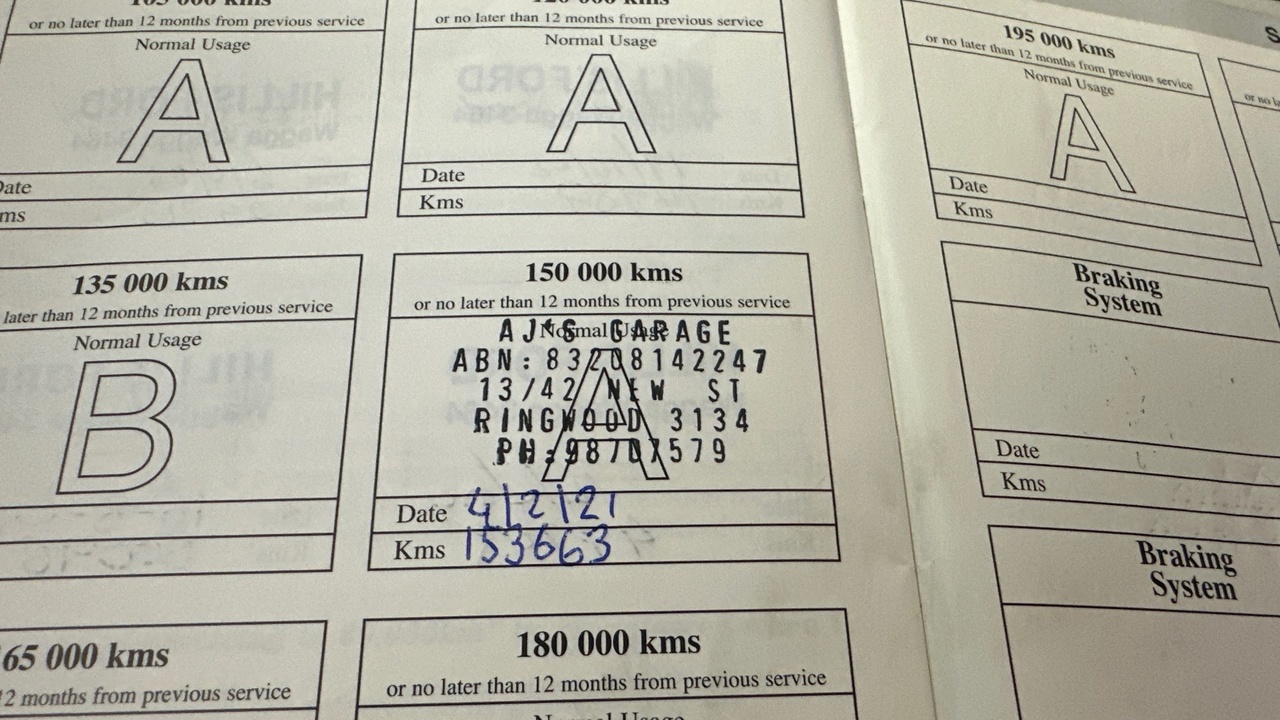 or no later than 12 months from previous service
Normal Usage
A
Date
Kms
or no later than 12 months from previous service
Normal Usage
A
Date
Kms
135 000 kms
later than 12 months from previous service
Normal Usage
B
150 000 kms
or no later than 12 months from previous service
Normal Usage
A
AJ'S GARAGE
ABN: 83208142247
13/42 NEW ST
RINGWOOD 3134
PH:98707579
Date 4/2/21
Kms 153663
65 000 kms
12 months from previous service
180 000 kms
or no later than 12 months from previous service
Normal Usage
195 000 kms
or no later than 12 months from previous service
Normal Usage
A
Date
Kms
Braking
System
Date
Kms
Braking
System